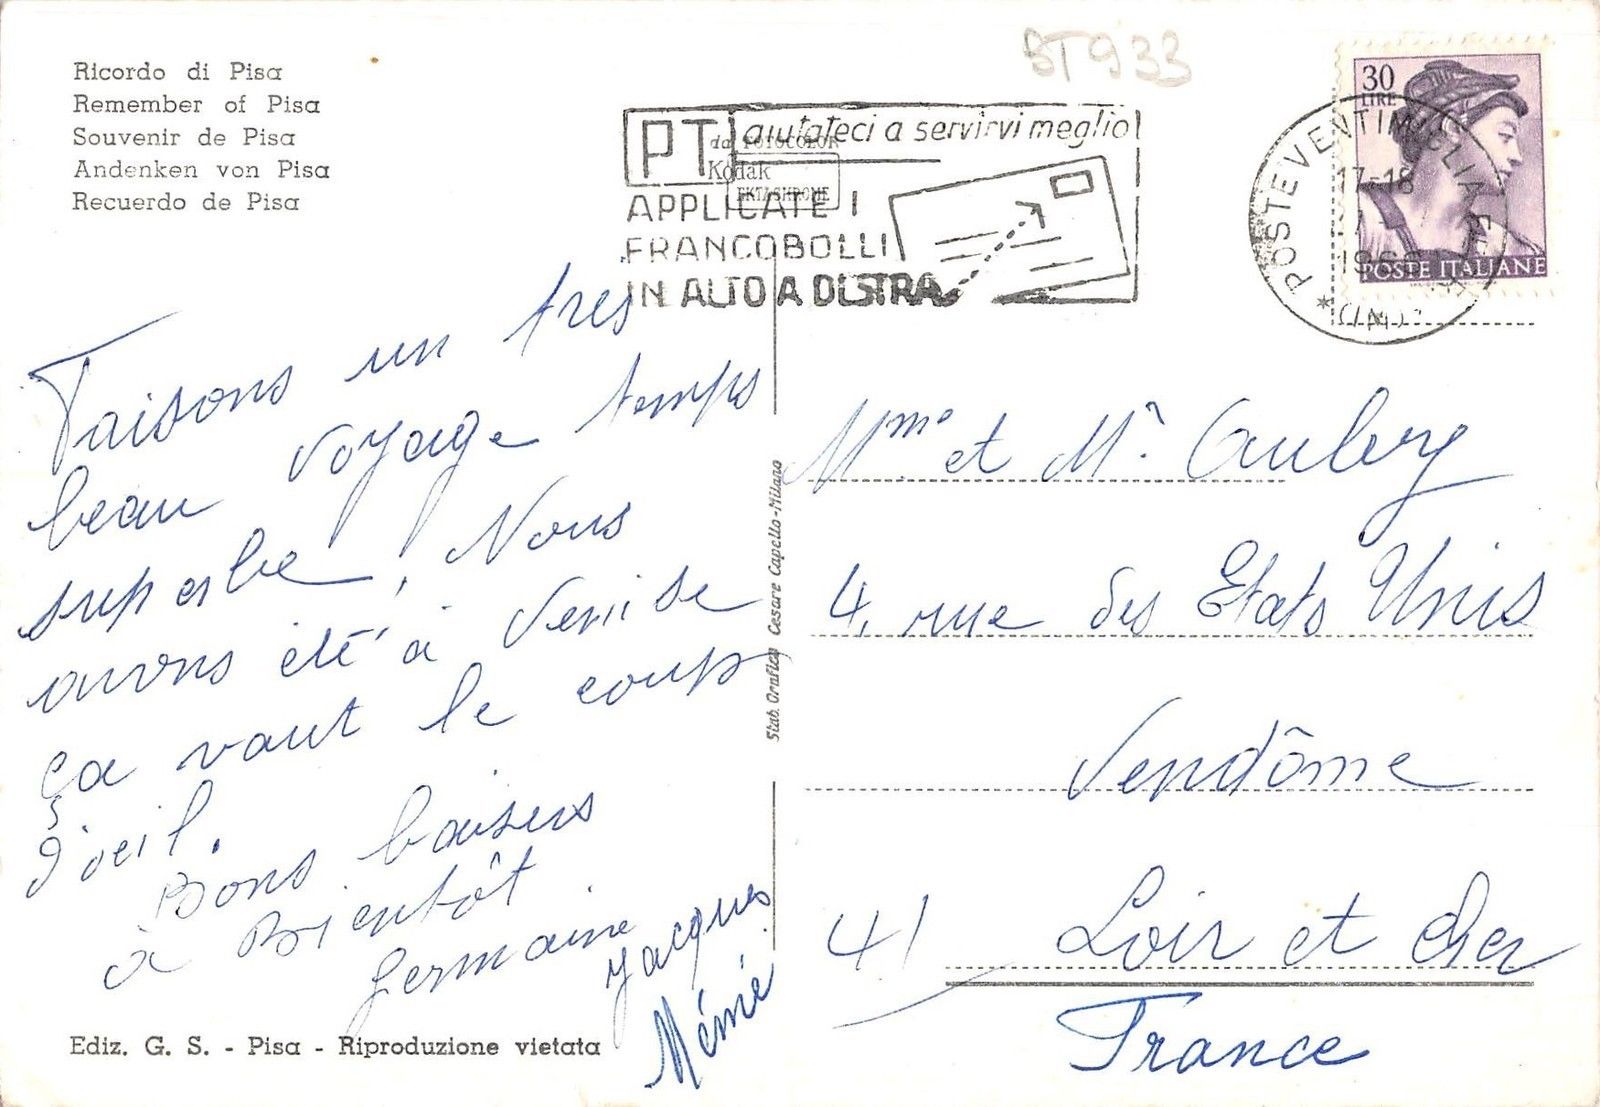 Ricordo di Pisa
Remember of Pisa
Souvenir de Pisa
Andenken von Pisa
Recuerdo de Pisa
BT933
PT aiutateci a servirvi meglio
da FOTOCOLOR
Kodak
EKTACHROME
APPLICATE I
FRANCOBOLLI
IN ALTO A DESTRA
30
LIRE
POSTE ITALIANE
POSTE VENTIMIGLIA
17-18
Faisons un tres
beau voyage temps
superbe, Nous
avons été à Venise
ça vaut le coup
d'oeil.
Bons baisers
à Bientôt
Germaine
Jacques
Mémé
Stab. Grafico Cesare Capello-Milano
Mme et Mr
4, rue des Etats Unis
Vendôme
41 Loir et Cher
France
Ediz. G. S. - Pisa - Riproduzione vietata